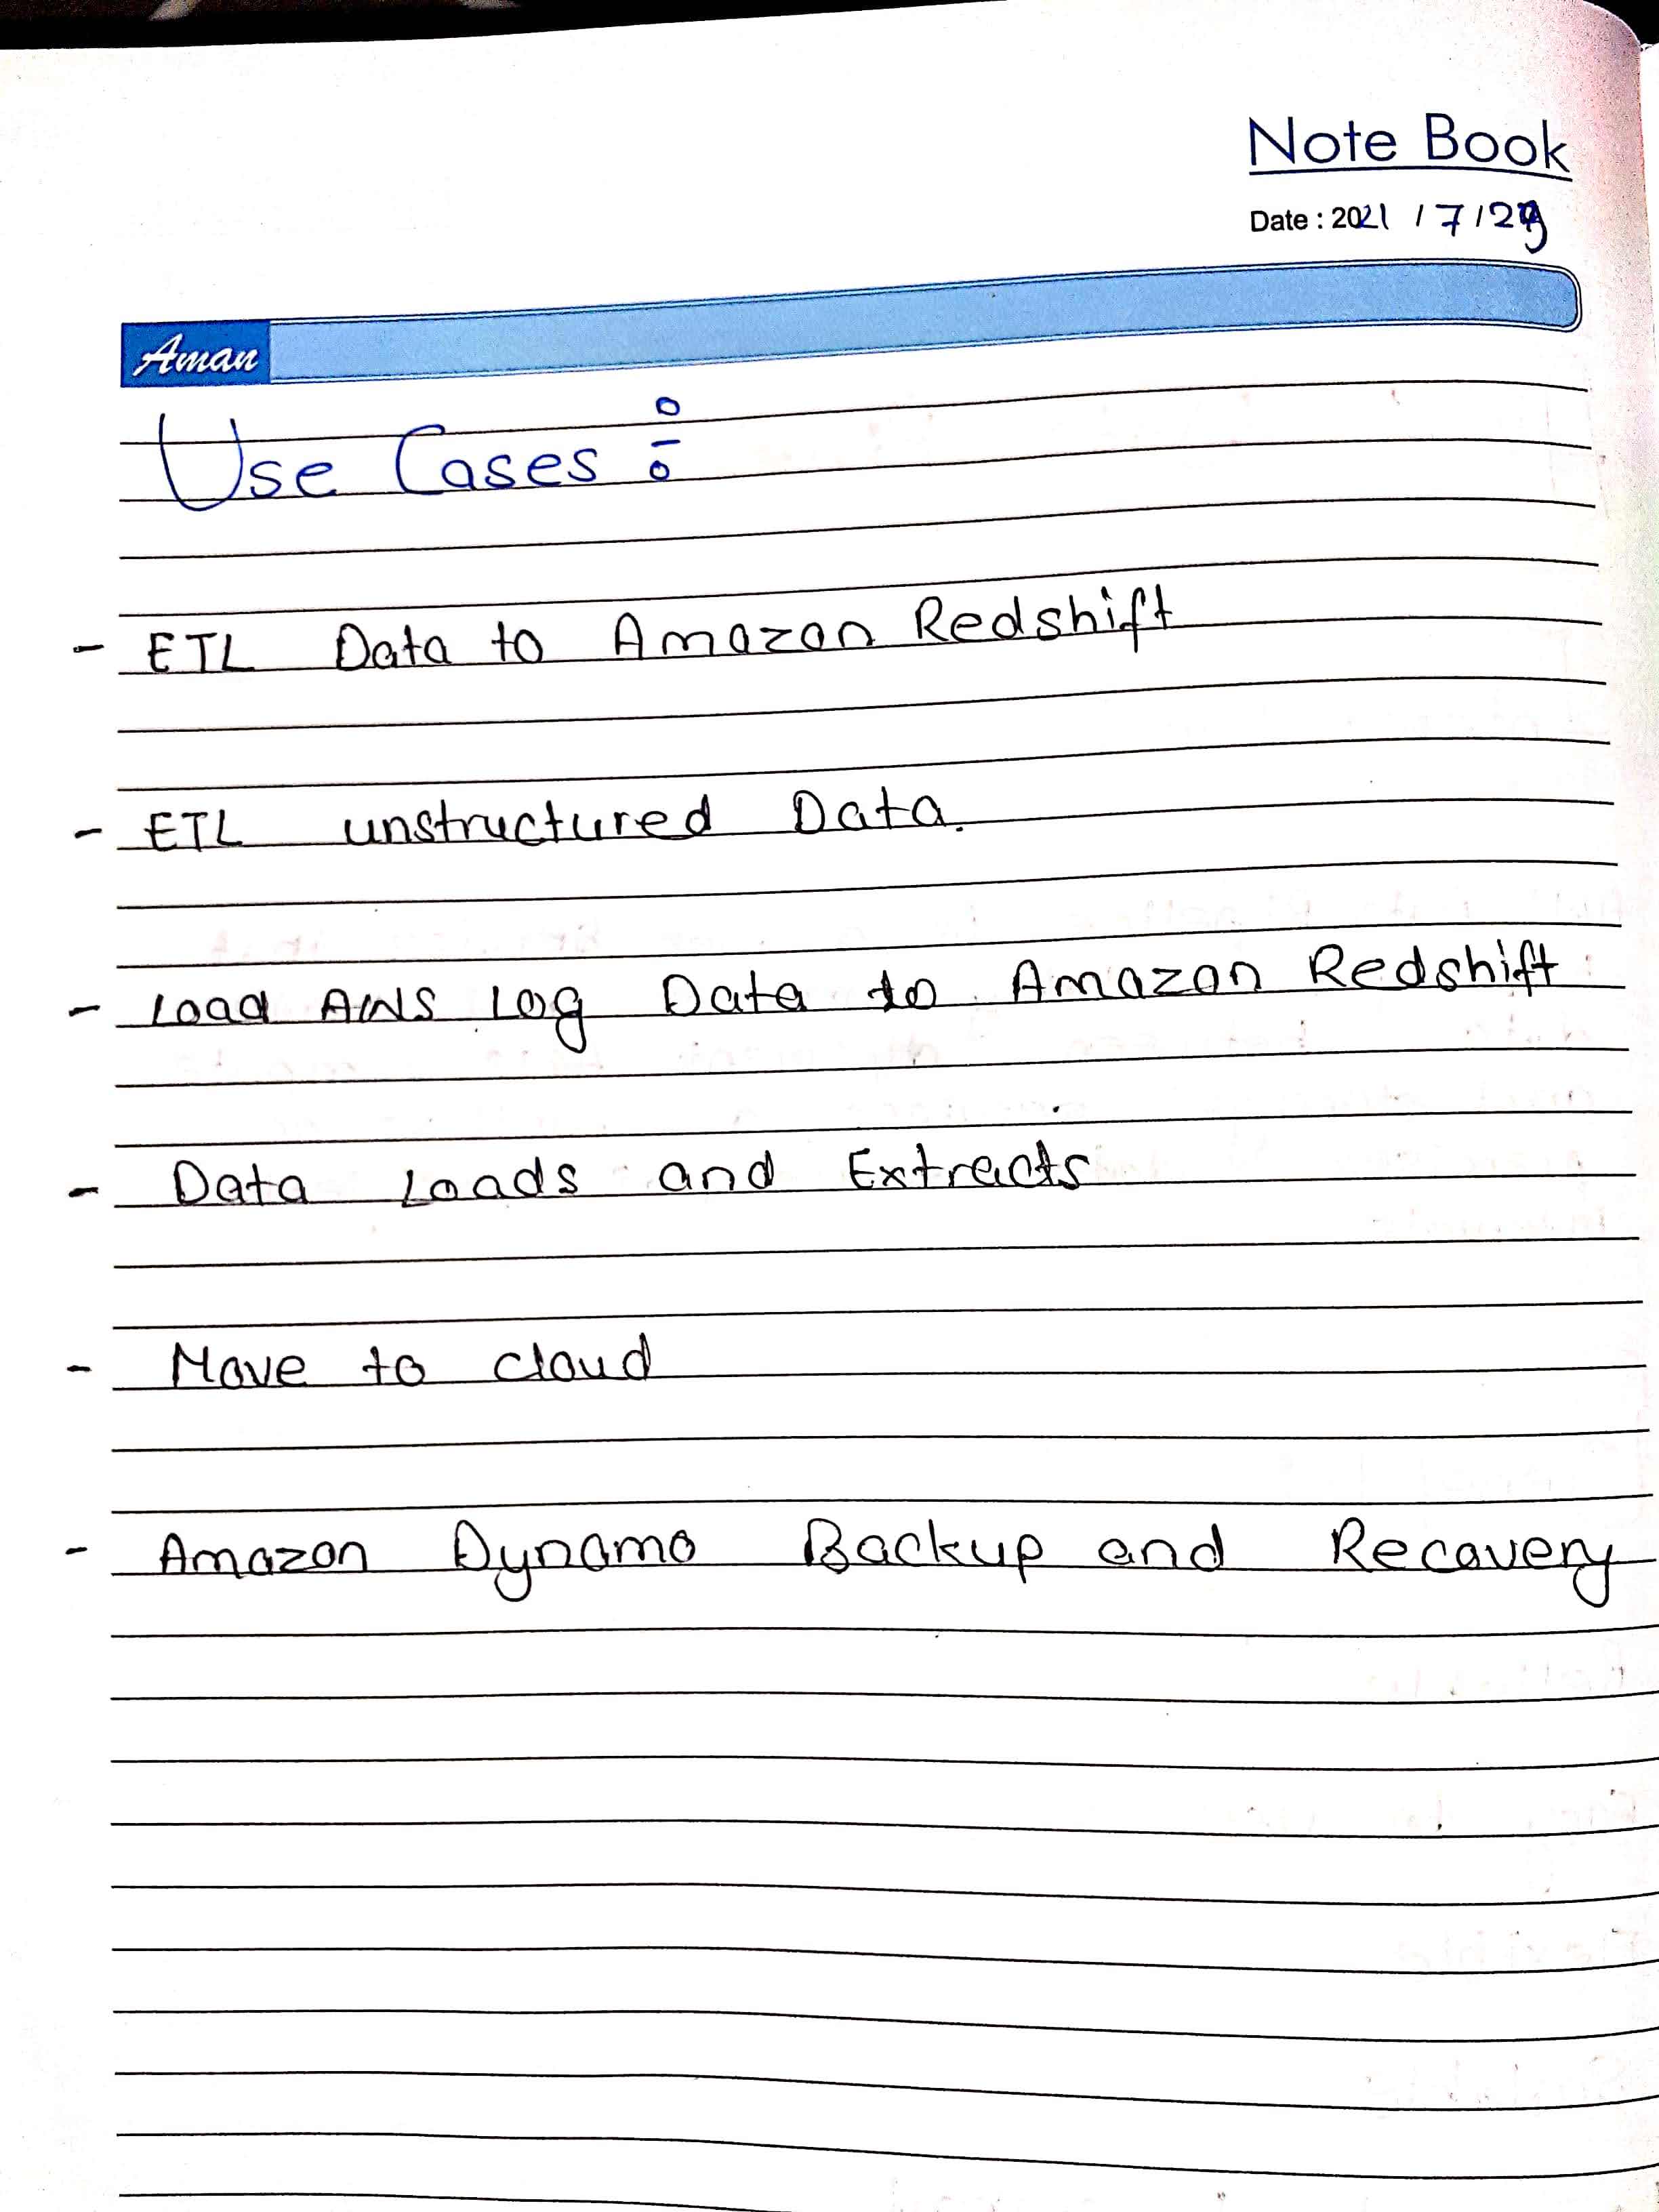 Note Book
Date : 2021 / 7 / 29
Aman
Use Cases :-
- ETL Data to Amazon Redshift
- ETL unstructured Data.
- Load AWS Log Data to Amazon Redshift
- Data Loads and Extracts
- Move to cloud
- Amazon Dynamo Backup and Recovery